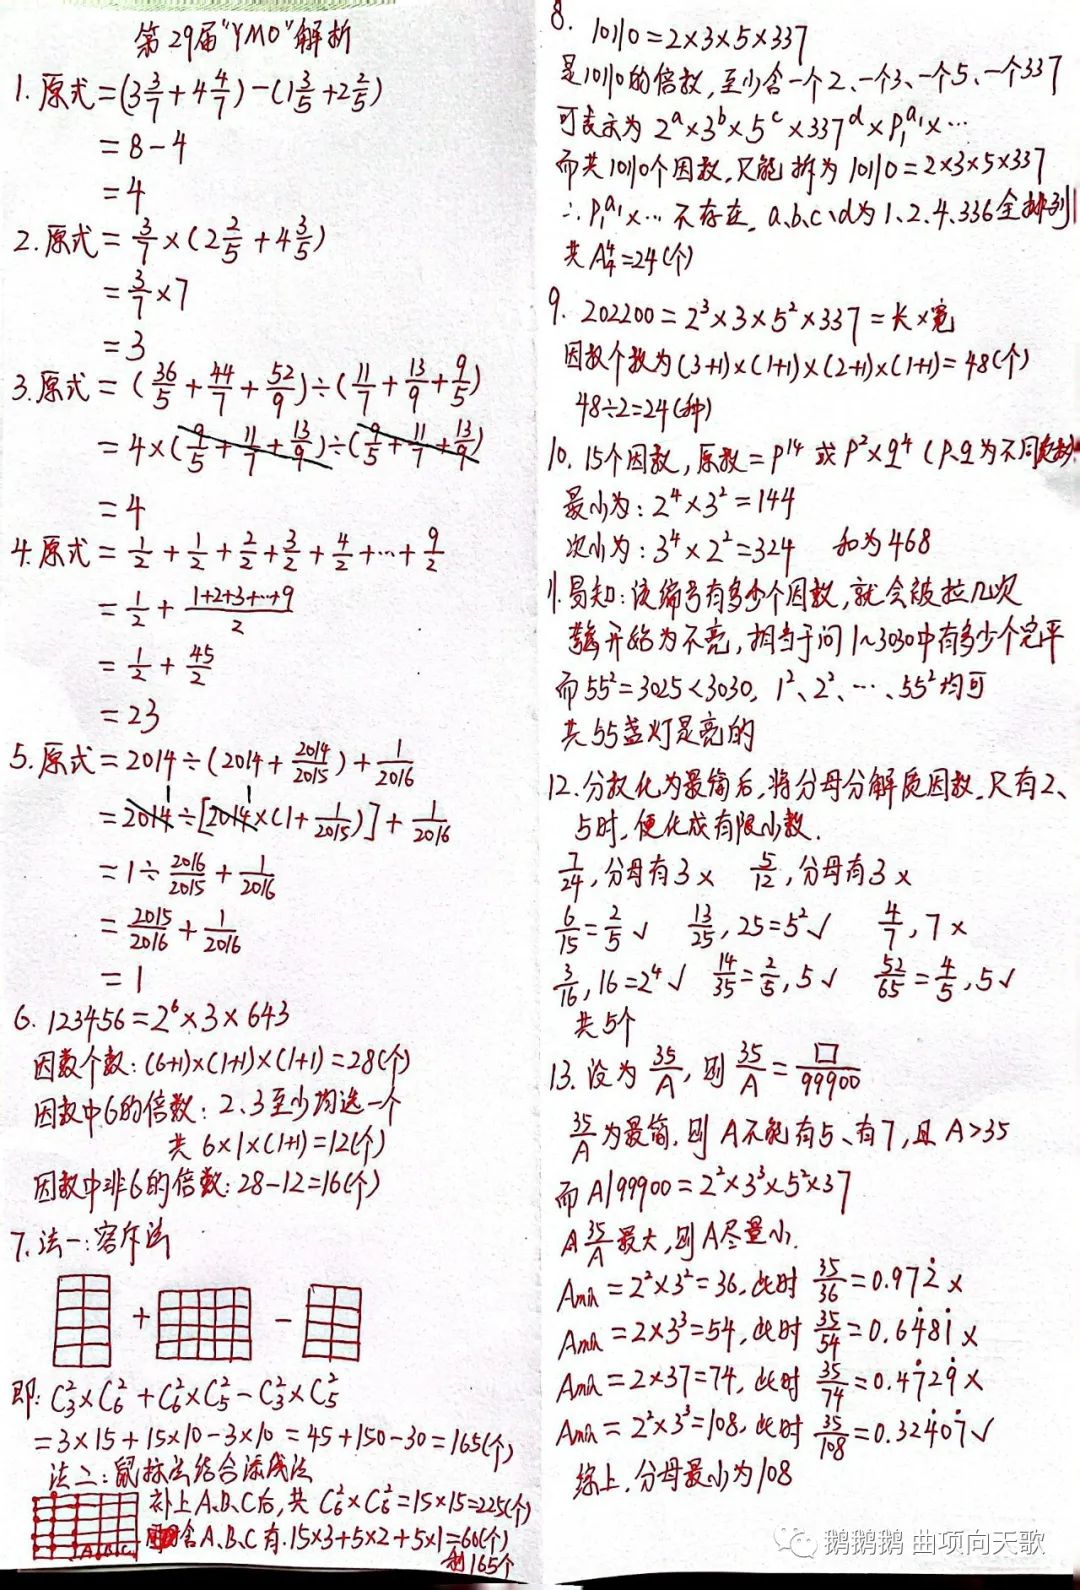 第29届"YMO"解析
1. 原式=(3 3/7+4 4/7)-(1 3/5+2 2/5)
=8-4
=4
2. 原式=3/7×(2 2/5+4 3/5)
=3/7×7
=3
3. 原式=(36/5+44/7+52/9)÷(11/7+13/9+9/5)
=4×(9/5+11/7+13/9)÷(9/5+11/7+13/9)
=4
4. 原式=1/2+1/2+2/2+3/2+4/2+…+9/2
=1/2+(1+2+3+…+9)/2
=1/2+45/2
=23
5. 原式=2014÷(2014+2014/2015)+1/2016
=2014÷[2014×(1+1/2015)]+1/2016
=1÷2016/2015+1/2016
=2015/2016+1/2016
=1
6. 123456=2⁶×3×643
因数个数:(6+1)×(1+1)×(1+1)=28(个)
因数中6的倍数:2、3至少均选一个
共6×1×(1+1)=12(个)
因数中非6的倍数:28-12=16(个)
7. 法一:容斥法
+ -
即:C₃²×C₆²+C₆²×C₅²-C₃²×C₅²
=3×15+15×10-3×10=45+150-30=165(个)
法二:鼠标法结合添线法
补上A.B.C后,共C₆²×C₆²=15×15=225(个)
含A.B.C有.15×3+5×2+5×1=60(个)
A B C
剩165个
8. 10110=2×3×5×337
是10110的倍数,至少含一个2、一个3、一个5、一个337
可表示为2ᵃ×3ᵇ×5ᶜ×337ᵈ×P₁ᵃ¹×…
而共10110个因数,只能拆为10110=2×3×5×337
∴P₁ᵃ¹×…不存在,a.b.c、d为1、2、4、336全排列
共A₄⁴=24(个)
9. 202200=2³×3×5²×337=长×宽
因数个数为(3+1)×(1+1)×(2+1)×(1+1)=48(个)
48÷2=24(种)
10. 15个因数,原数=P¹⁴或P²×q⁴(P.q为不同质数)
最小为:2⁴×3²=144
次小为:3⁴×2²=324 和为468
11. 易知:该编号有多少个因数,就会被拉几次
开始为不亮,相当于问1~3030中有多少个完平
而55²=3025<3030, 1²、2²、…、55²均可
共55盏灯是亮的
12. 分数化为最简后,将分母分解质因数,只有2、
5时,便化成有限小数.
7/24,分母有3× 5/12,分母有3×
6/15=2/5√ 13/25,25=5²√ 4/7,7×
3/16,16=2⁴√ 14/35=2/5,5√ 52/65=4/5,5√
共5个
13. 设为35/A,则35/A=□/99900
35/A为最简,则A不能有5、有7,且A>35
而A|99900=2²×3³×5²×37
35/A最大,则A尽量小.
Amin=2²×3²=36,此时35/36=0.972̇×
Amin=2×3³=54,此时35/54=0.64̇81̇×
Amin=2×37=74,此时35/74=0.47̇29̇×
Amin=2²×3³=108,此时35/108=0.324̇07̇√
综上,分母最小为108
鹅鹅鹅 曲项向天歌